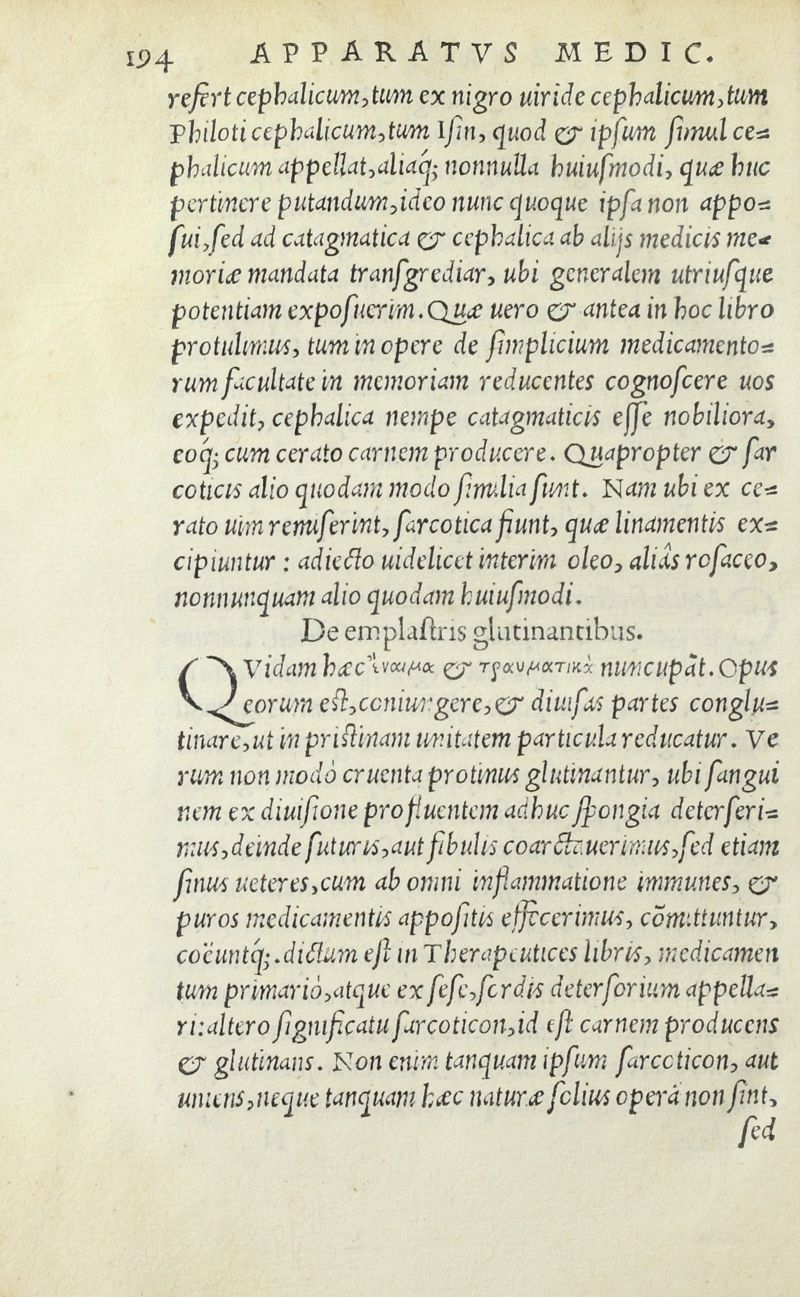 194 APPARATVS MEDIC.
refert cephalicum, tum ex nigro uiride cephalicum, tum
Philoti cephalicum, tum Iſin, quod & ipſum ſimul ce=
phalicum appellat, aliaq; nonnulla huiuſmodi, quæ huc
pertinere putandum, ideo nunc quoque ipſa non appo=
ſui, ſed ad catagmatica & cephalica ab alijs medicis me=
moriæ mandata tranſgrediar, ubi generalem utriuſque
potentiam expoſuerim. Quæ uero & antea in hoc libro
protulimus, tum in opere de ſimplicium medicamento=
rum facultate in memoriam reducentes cognoſcere uos
expedit, cephalica nempe catagmaticis eſſe nobiliora,
eoq́; cum cerato carnem producere. Quapropter & ſar
coticis alio quodam modo ſimilia ſunt. Nam ubi ex ce=
rato uim remiſerint, ſarcotica fiunt, quæ linamentis ex=
cipiuntur : adiecto uidelicet interim oleo, aliàs roſaceo,
nonnunquam alio quodam huiuſmodi.
De emplaſtris glutinantibus.
QVidam hæc ἔναιμα & τραυματικὰ nuncupãt. Opus
eorum eſt, coniungere, & diuiſas partes conglu=
tinare, ut in priſtinam unitatem particula reducatur. Ve
rum non modò cruenta protinus glutinantur, ubi ſangui
nem ex diuiſione profluentem adhuc ſpongia deterſeri=
mus, deinde ſuturis, aut fibulis coarctauerimus, ſed etiam
ſinus ueteres, cum ab omni inflammatione immunes, &
puros medicamentis appoſitis effecerimus, cõmittuntur,
coëuntq́;. dictum eſt in Therapeutices libris, medicamen
tum primariò, atque ex ſeſe, ſordis deterſorium appella=
ri: altero ſignificatu ſarcoticon, id eſt carnem producens
& glutinans. Non enim tanquam ipſum ſarcoticon, aut
uniens, neque tanquam hæc naturæ ſolius operâ non ſint,
ſed